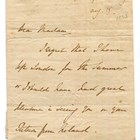 Dear Madam
I regret that I have
left London for the Summer
or I should have had great
pleasure in seeing you on your
return from Ireland